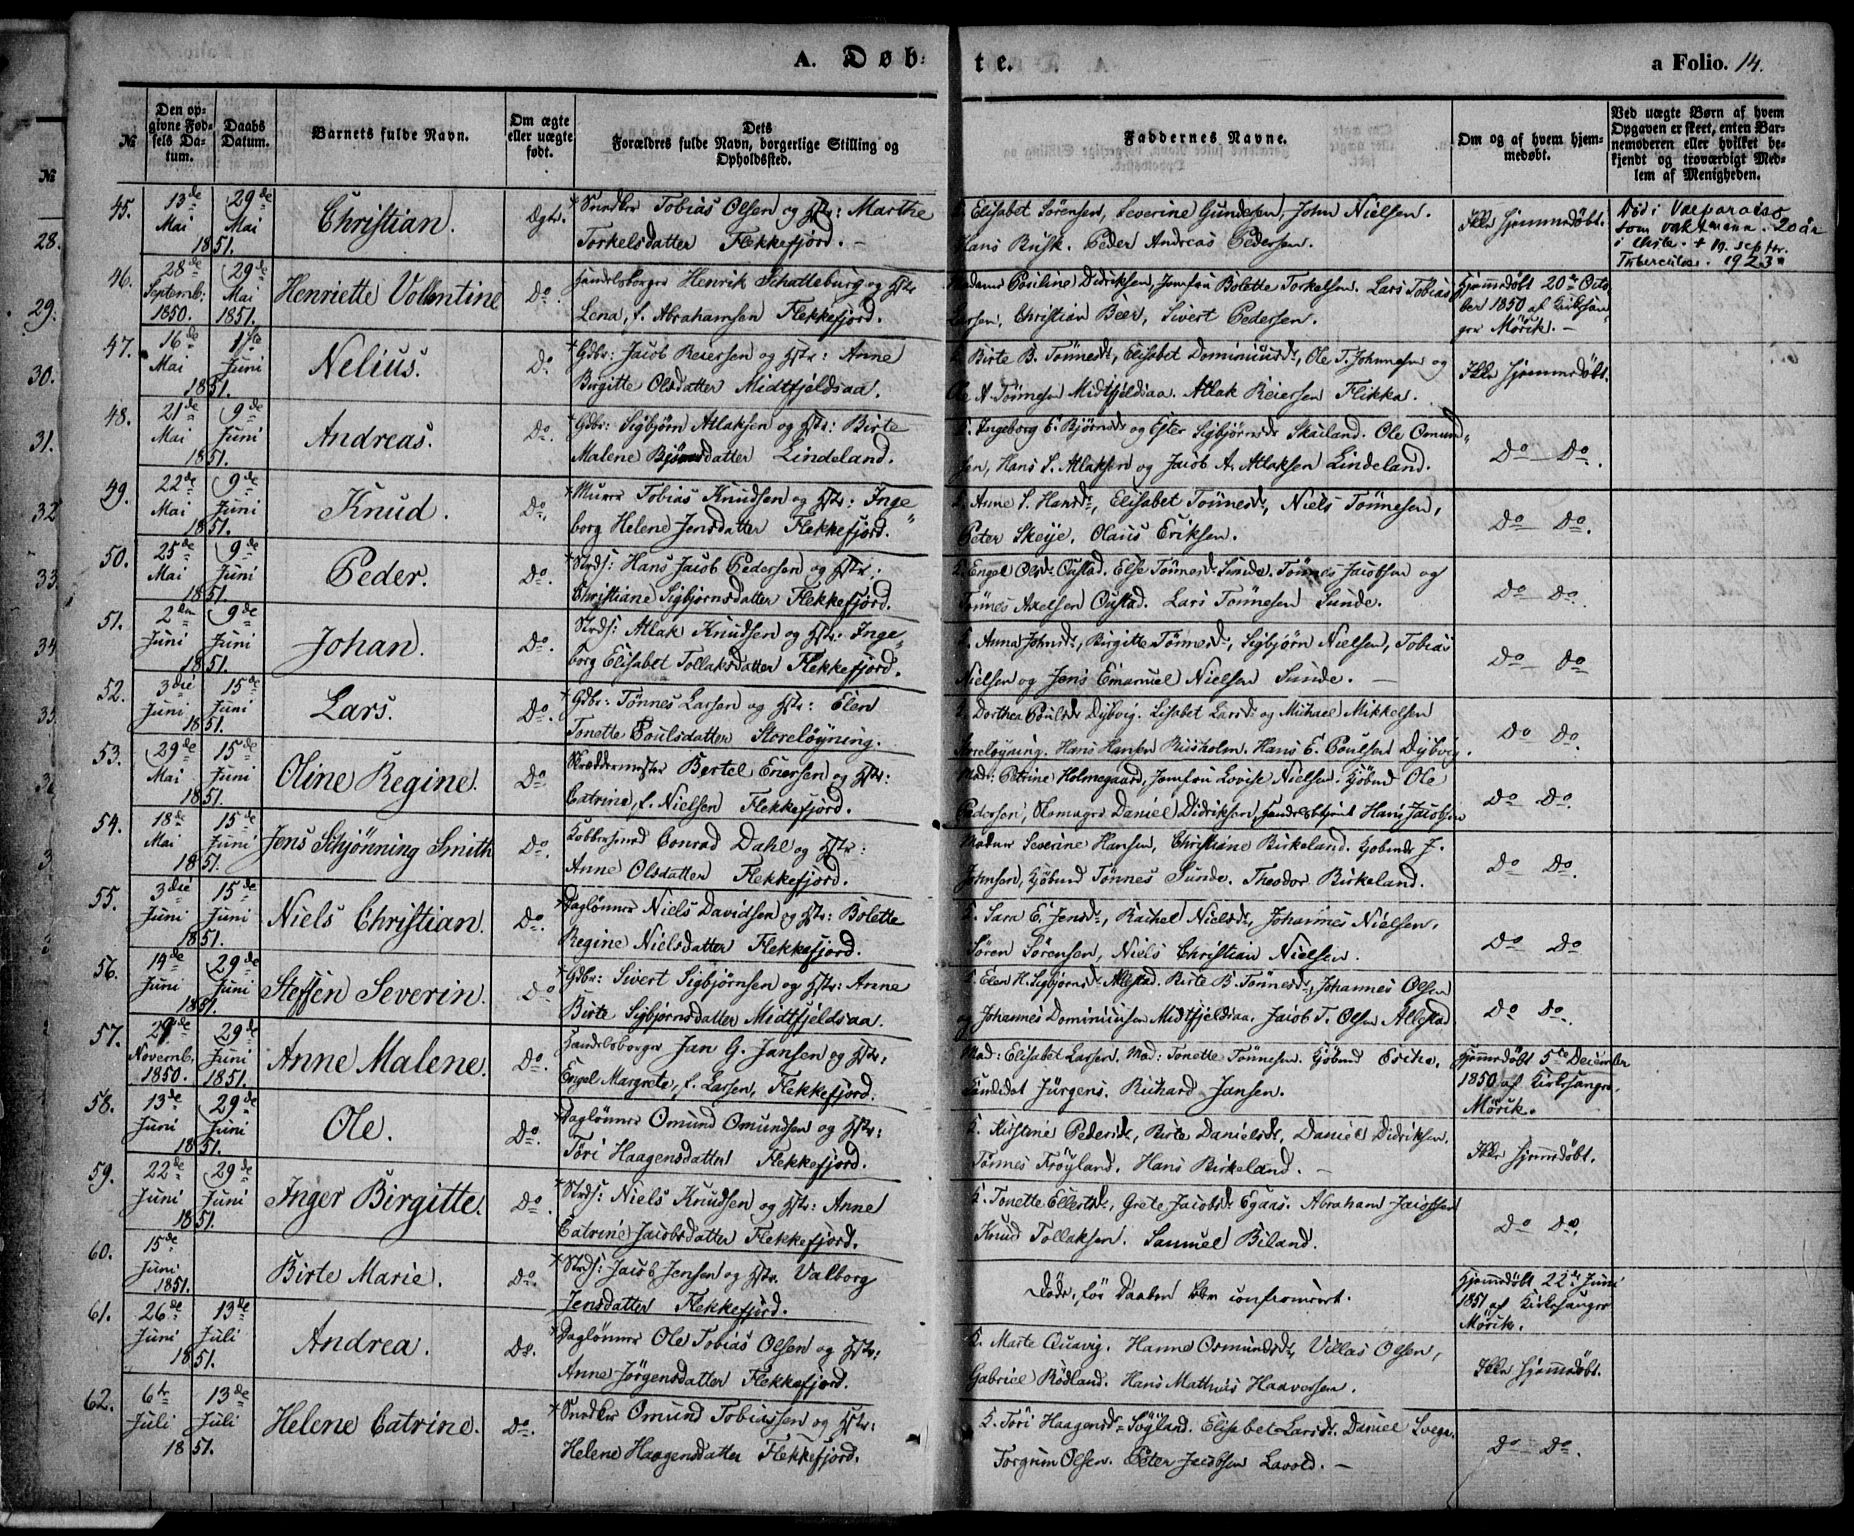 A. Døbte. a Folio. 14.
№ Den opgivne Fødsels Datum. Daabs Datum. Barnets fulde Navn. Om ægte eller uægte født. Dets Forældres fulde Navn, borgerlige Stilling og Opholdssted. Faddernes Navne. Om og af hvem hjemmedøbt. Ved uægte Børn af hvem Opgaven er skeet, enten Barnemoderen eller hvilket bekjendt og troværdigt Medlem af Menigheden.
45. 13de Mai 29de Mai 1851. Christian. Ægte. Snedker Tobias Olsen og Hstr: Marthe
Torkelsdatter Flekkefjord. —
F. Elisabet Sørensen, Severine Gundesen, John Nielsen.
Hans Busk. Peder Andreas Pedersen.
Ikke hjemmedøbt.
Død i Valparaiso
som vaktmann. 20 år
i Chile. + 19. septbr.
Tuberculose. 1923.
46. 28de Septemb: 1850. 29de Mai 1851. Henriette Vollentine Do. Handelsborger Henrik Schatteburg og Hstr
Lena, f. Abrahamsen Flekkefjord.
Madame Pouline Didriksen, Jomfru Bolette Torkelsen. Lars Tobias
Larsen, Christian Beer, Sivert Pedersen.
Hjemmedøbt 20de Octo
ber 1850 af Kirkesan
ger Mörik. —
47. 16de Mai 1ste Juni 1851. Nelius. Do. Gdbr: Jacob Reiersen og Hstr: Anne
Birgitte Olsdatter Midtfjeldsaa.
F. Birte B. Tönnesdr, Elisabet Dominicusdr, Ole T. Johnnesen og
Ole A. Tönnesen Midtfjeldsaa. Atlak Reiersen Flikka.
Ikke hjemmedøbt.
48. 21de Mai 9de Juni 1851. Andreas. Do. Gdbr: Sigbjørn Atlaksen og Hstr: Birte
Malene Bjørnsdatter Lindeland.
F. Ingeborg E. Bjørnsdr og Ester Sigbjørnsdr Skailand. Ole Omund-
sen, Hans S. Atlaksen og Jacob A. Atlaksen Lindeland.
Do Do.
49. 22de Mai 9de Juni 1851. Knud. Do. Murer Tobias Knudsen og Hstr: Inge
borg Helene Jensdatter Flekkefjord.
F. Anne S. Hansdr, Elisabet Tönnesdr, Niels Tönnesen,
Peter Skeije, Olaus Eriksen.
Do Do.
50. 25de Mai 9de Juni 1851. Peder. Do. Strds: Hans Jacob Pedersen og Hstr:
Christiane Sigbjørnsdatter Flekkefjord.
F. Engel Olsdr Oustad. Else Tönnesdr Sunde. Tönnes Jacobsen og
Tönnes Axelsen Oustad. Lars Tönnesen Sunde.
Do Do.
51. 2den Juni 9de Juni 1851. Johan. Do. Strds: Atlak Knudsen og Hstr: Inge-
borg Elisabet Tollaksdatter Flekkefjord.
F. Anna Johnsdr, Birgitte Tönnesdr, Sigbjørn Nielsen, Tobias
Nielsen og Jens Emanuel Nielsen Sunde. —
Do Do
52. 3die Juni 15de Juni 1851. Lars. Do. Gdbr: Tönnes Larsen og Hstr: Elen
Tonette Poulsdatter Storeløyning.
F. Dorthea Poulsdr Dybvig. Lisabet Larsdr og Michael Mikkelsen
Storeløyning. Hans Hansen Risholm. Hans E. Poulsen Dybvig.
Do Do.
53. 29de Mai 15de Juni 1851. Oline Regine. Do. Skræddermester Bertel Enersen og Hstr:
Catrine, f. Nielsen Flekkefjord.
Mad: Petrine Holmegaard, Jomfru Lovise Nielsen. Kjöbmd Ole
Pedersen, Gamager Daniel Didriksen, Handelsbetjent Hans Jacobsen
Do Do.
54. 18de Mai 15de Juni 1851. Jens Schjønning Smith Do. Kobbersmed Conrad Dahl og Hstr:
Anne Olsdatter Flekkefjord.
Madame Severine Hansen, Christiane Birkeland. Kjöbmd J.
Johnsen, Kjöbmd Tönnes Sunde. Theodor Birkeland.
Do Do.
55. 3die Juni 15de Juni 1851. Niels Christian. Do. Daglönner Niels Davidsen og Hstr: Bolette
Regine Nielsdatter Flekkefjord.
F. Sara E. Jensdr, Rachel Nielsdr, Johannes Nielsen,
Sören Sörensen, Niels Christian Nielsen.
Do Do
56. 14de Juni 29de Juni 1851. Steffen Severin. Do Gdbr: Sivert Sigbjørnsen og Hstr: Anne
Birte Sigbjørnsdatter Midtfjeldsaa.
F. Elen H. Sigbjørnsdr Allestad. Birte B. Tönnesdr, Johannes Olsen
og Johannes Dominicusen Midtfjeldsaa. Jacob T. Olsen Allestad
Do Do.
57. 29de Novemb. 1850. 29de Juni 1851. Anne Malene. Do. Handelsborger Jan G. Jansen og Hstr:
Engel Margrete, f. Larsen, Flekkefjord.
Mad: Elisabet Larsen. Mad: Tonette Tönnesen. Kjöbmd
Kandidat Jürgens. Richard Jansen.
Hjemmedøbt 5te December
1850 af Kirkesanger
Mörik.
58. 13de Juni 29de Juni 1851. Ole. Do. Daglönner Omund Omundsen og Hstr:
Töri Haagensdatter Flekkefjord.
F. Kirstene Pedersdr, Birte Danielsdr, Daniel Didriksen.
Tönnes Fröyland. Hans Birkeland. —
Ikke hjemmedøbt.
59. 22de Juni 29de Juni 1851. Inger Birgitte. Do. Strds: Niels Knudsen og Hstr: Anne
Catrine Jacobsdatter Flekkefjord.
F. Tonette Ellertsdr, Grete Jacobsdr Egaas. Abraham Jacobsen
Knud Tollaksen. Samuel Biland.
Do Do.
60. 15de Juni 1851. Birte Marie. Do. Strds: Jacob Jensen og Hstr. Valborg
Jensdatter Flekkefjord.
Döde, før Daaben blev confirmeret.
Hjemmedøbt 22de Juni
1851 af Kirkesanger
Mörik.
61. 26de Juni 13de Juli 1851. Andrea. Do. Daglönner Ole Tobias Olsen og Hstr:
Anne Jörgensdatter Flekkefjord.
F. Marte Qvavig. Hanne Osmundsdr, Villas Olsen,
Gabriel Rödland. Hans Mathias Haaversen.
Ikke hjemmedøbt.
62. 6te Juli 13de Juli 1851. Helene Catrine. Do. Snedker Omund Tobiassen og Hstr:
Helene Haagensdatter Flekkefjord.
F. Töri Haagensdr Söyland. Elisabet Larsdr. Daniel Svege.
Torgrim Olsen. Peter Jacobsen Lavold. —
Do Do.
№
28.
29.
30.
31.
32
33
34
35